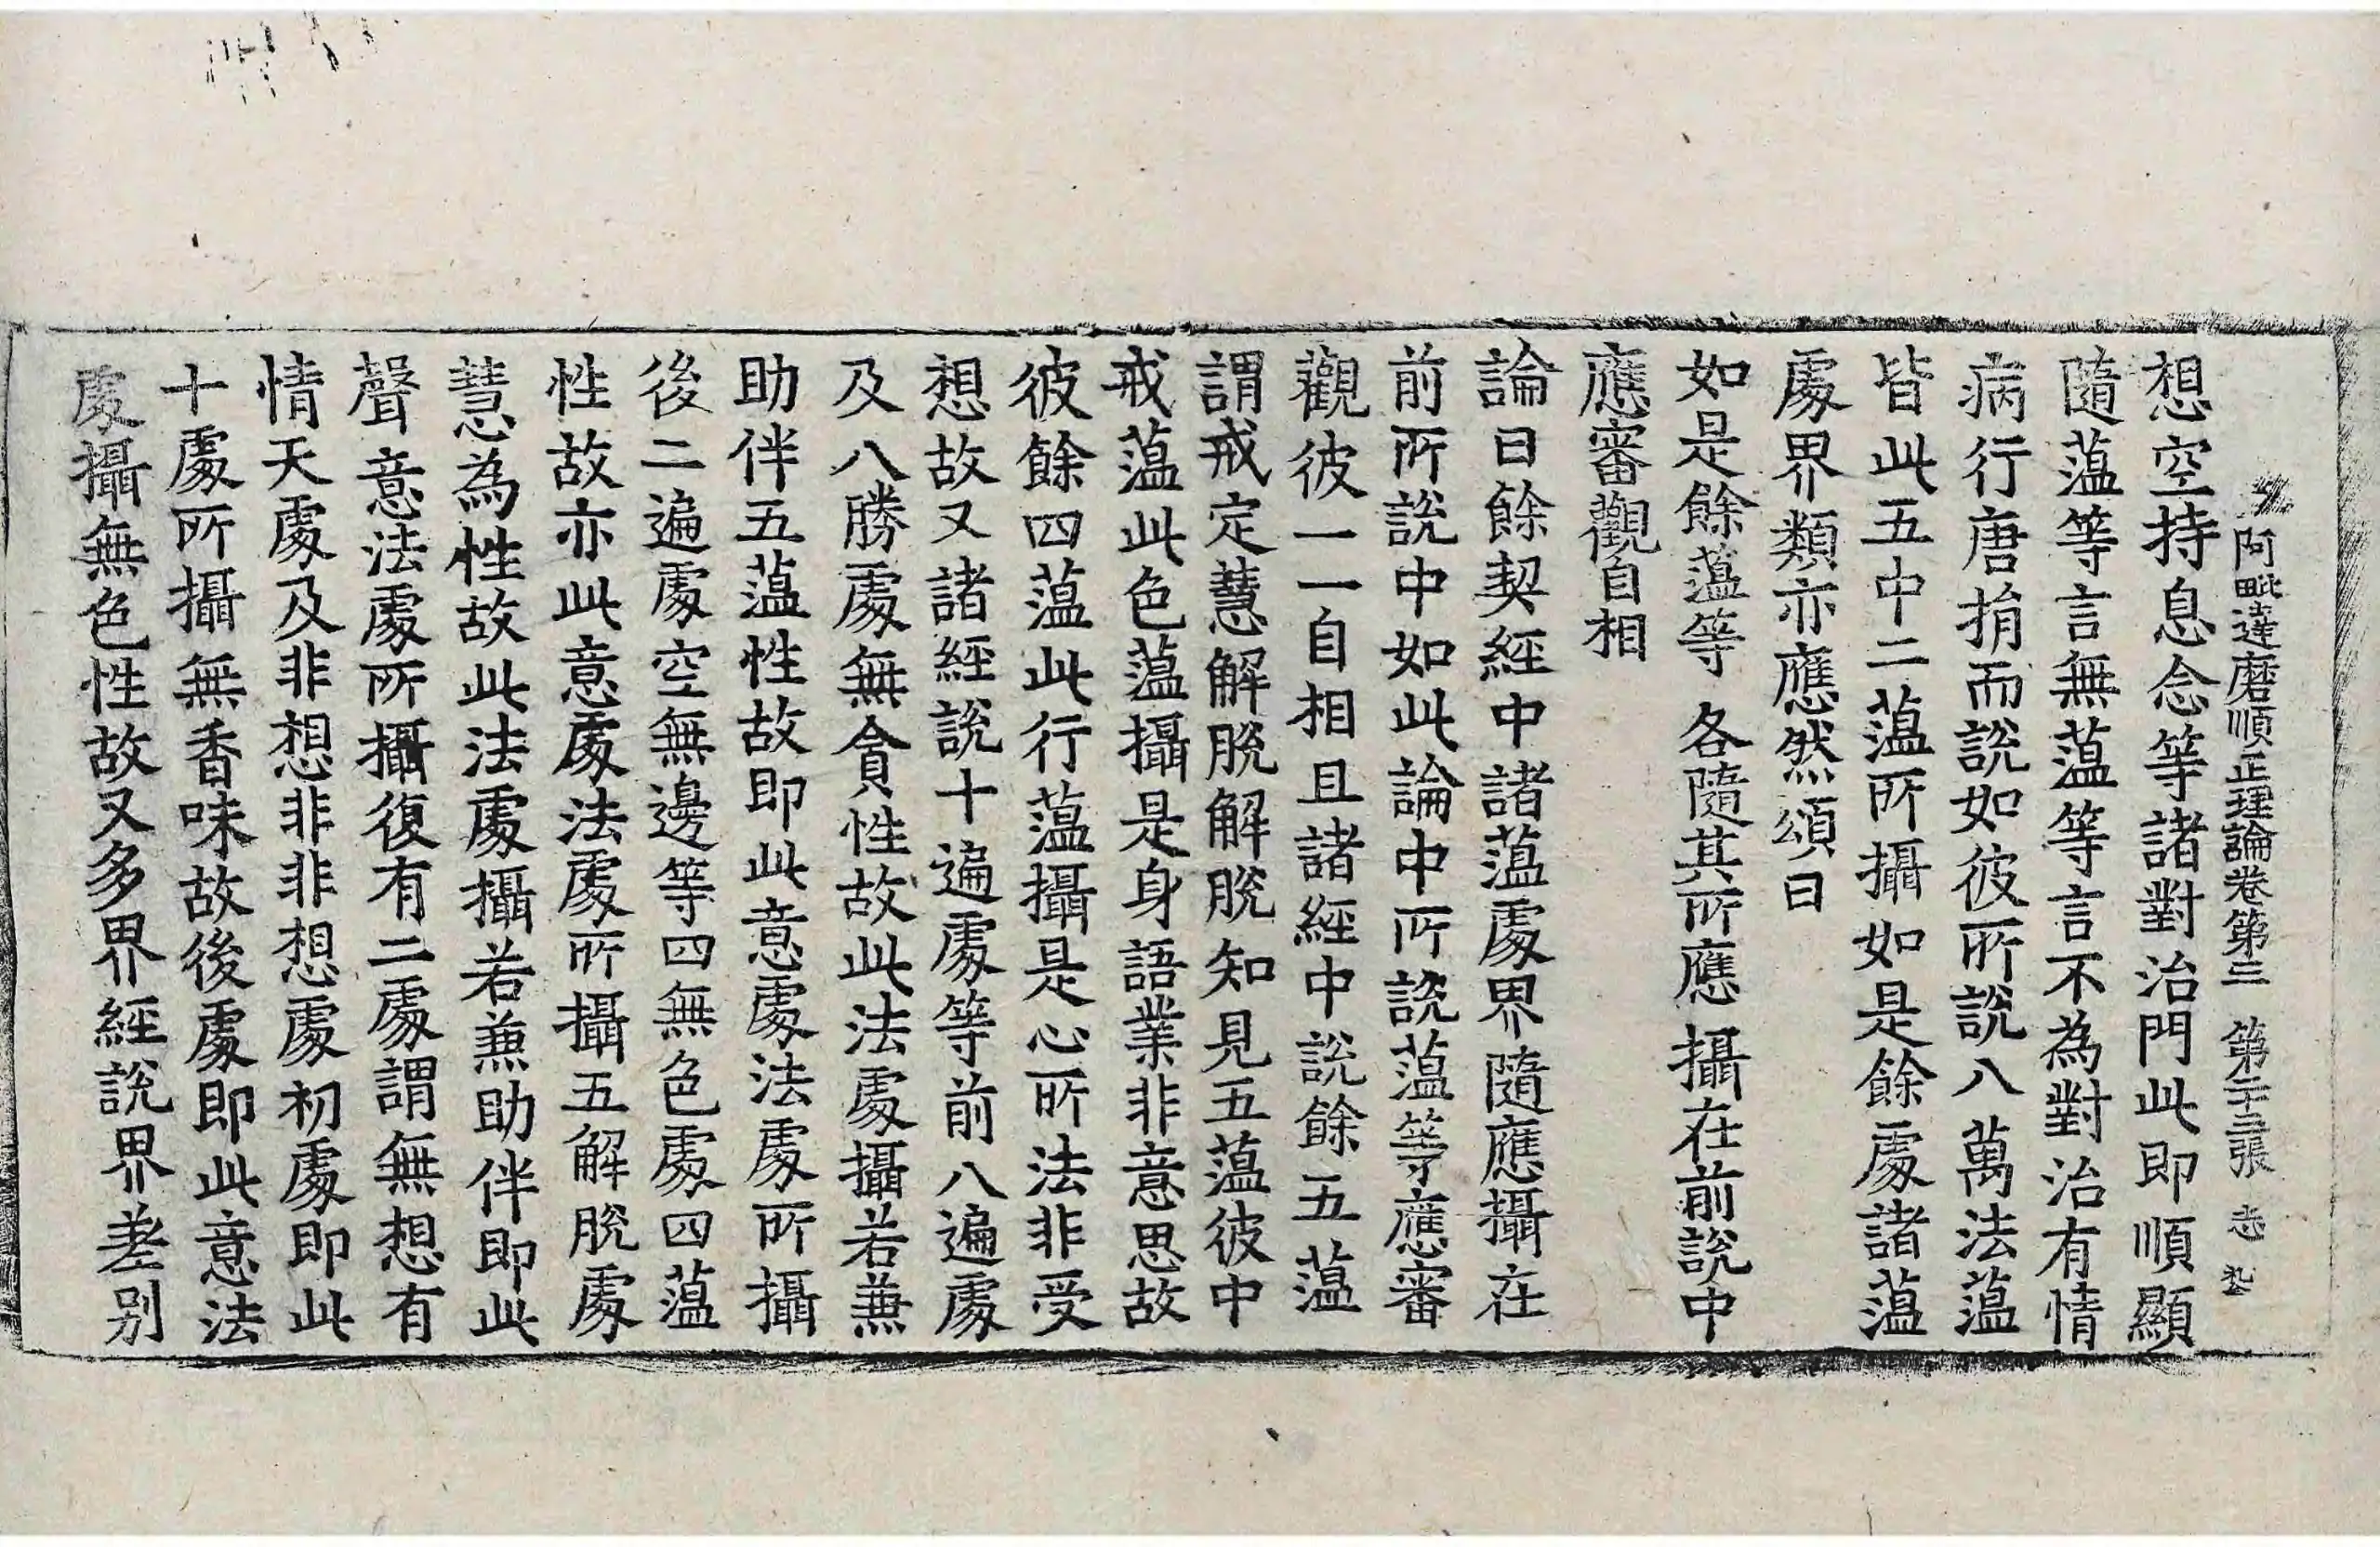 阿毗達磨順正理論卷第三　第二十三張　志
想空持息念等諸對治門此即順顯
隨蘊等言無蘊等言不為對治有情
病行唐捐而說如彼所說八萬法蘊
皆此五中二蘊所攝如是餘處諸蘊
處界類亦應然頌曰
如是餘蘊等　各隨其所應　攝在前說中
應審觀自相
論曰餘契經中諸蘊處界隨應攝在
前所說中如此論中所說蘊等應審
觀彼一一自相且諸經中說餘五蘊
謂戒定慧解脫解脫知見五蘊彼中
戒蘊此色蘊攝是身語業非意思故
彼餘四蘊此行蘊攝是心所法非受
想故又諸經說十遍處等前八遍處
及八勝處無貪性故此法處攝若兼
助伴五蘊性故即此意處法處所攝
後二遍處空無邊等四無色處四蘊
性故亦此意處法處所攝五解脫處
慧為性故此法處攝若兼助伴即此
聲意法處所攝復有二處謂無想有
情天處及非想非非想處初處即此
十處所攝無香味故後處即此意法
處攝無色性故又多界經說界差別